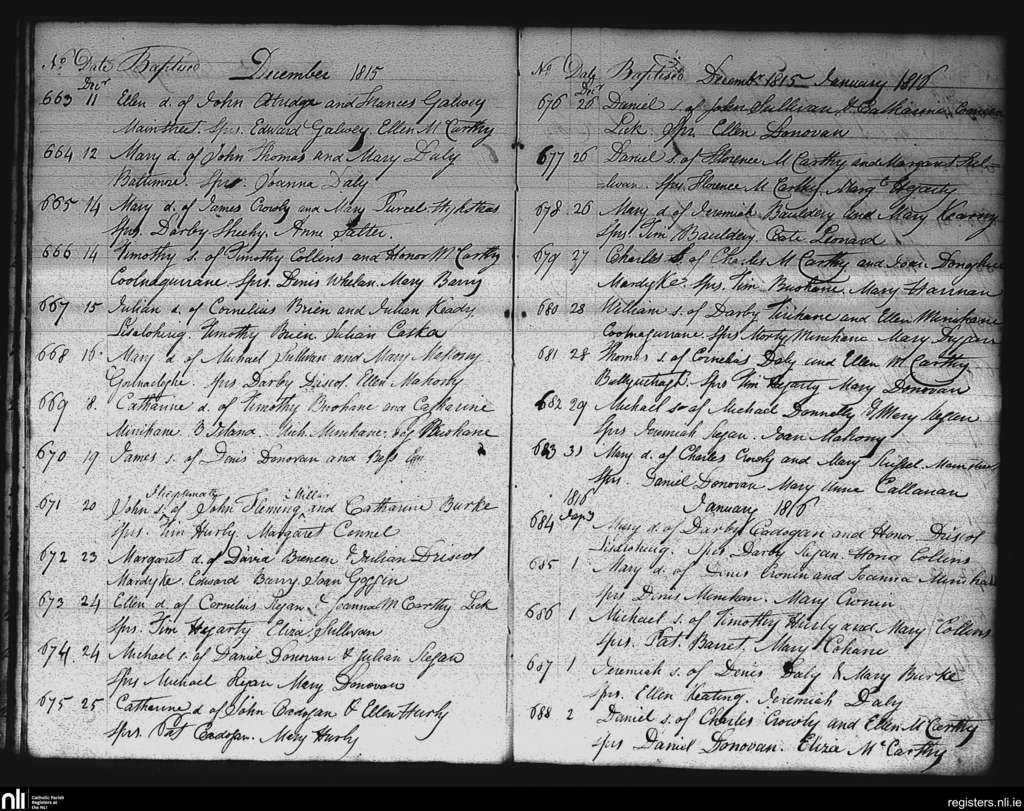 No Date Baptised December 1815
Decr
663 11 Ellen d. of John Attridge and Frances Galwey
Mainstreet. Sprs. Edward Galwey. Ellen McCarthy
664 12 Mary d. of John Thomas and Mary Daly
Baltimore. Sprs. Joanna Daly
665 14 Mary d. of James Crowly and Mary Purcel
Sprs. Darby Sheehy. Anne
666 14 Timothy s. of Timothy Collins and Honor McCarthy
Coolnagurrane. Sprs. Denis Whelan. Mary Barry
667 15 Julian d. of Cornelius Brien and Julian Keady
Timothy Brien. Julian
668 16 Mary d. of Michael Sullivan and Mary Mahony
Sprs Darby Driscol. Ellen Mahony
669 18. Catharine d. of Timothy Buohane and Catharine
Minihane. Minihane. Buohane
670 19 James s. of Denis Donovan and Bess
671 20 John s. of John Fleming and Catharine Burke
Sprs. Tim Hurly. Margaret Connel
672 23 Margaret d. of David Breneen & Julian Driscol
Mardyke. Edward Barry. Joan Goggin
673 24 Ellen d. of Cornelius Regan & Joanna McCarthy Lick
Sprs. Tim Hegarty Eliza Sullivan
674. 24 Michael s. of Daniel Donovan & Julian Regan
Sprs Michael Ryan Mary Donovan
675 25 Catharine d. of John Cadogan & Ellen Hurly
Sprs. Pat Cadogan. Mary Hurly
No Date Baptised Decembr 1815 January 1816
Decr
676 26 Daniel s. of John Sullivan & Catharine
Lick. Spr. Ellen Donovan
677 26 Daniel s. of Florence McCarthy and Margaret Sul-
livan. Sprs. Florence McCarthy. Margt Hegarty
678. 26 Mary d. of Jeremiah Bauldery and Mary Kearny
Sprs. Tim Bauldery. Cate Leonard
679 27 Charles s. of Charles McCarthy and Joan
Mardyke. Sprs. Tim Buohane Mary
680 28 William s. of Darby and Ellen Minihane
Coolnagurrane. Sprs Morty Minihane. Mary
681 28 Thomas s. of Cornelius Daly and Ellen McCarthy
Sprs Tim Hegarty Mary Donovan
682 29 Michael s. of Michael Donnelly & Mary
Sprs Jeremiah Regan. Joan Mahony
683 31 Mary d. of Charles Crowly and Mary
Sprs. Daniel Donovan Mary Anne Callanan
1816 January 1816
684 Mary d. of Darby Cadogan and Honor Driscol
Sprs Darby Regan. Honor Collins
685 1 Mary d. of Denis Cronin and Joanna
Sprs Denis Minihan. Mary Cronin
686 1 Michael s. of Timothy Hurly and Mary Collins
Sprs. Pat. Barret. Mary Cohane
687 1 Jeremiah s. of Denis Daly & Mary Burke
Sprs. Ellen Keating. Jeremiah Daly
688 2 Daniel s. of Charles Crowly and Ellen McCarthy
Sprs Daniel Donovan. Eliza McCarthy
nli
Catholic Parish
Registers at
the NLI
registers.nli.ie